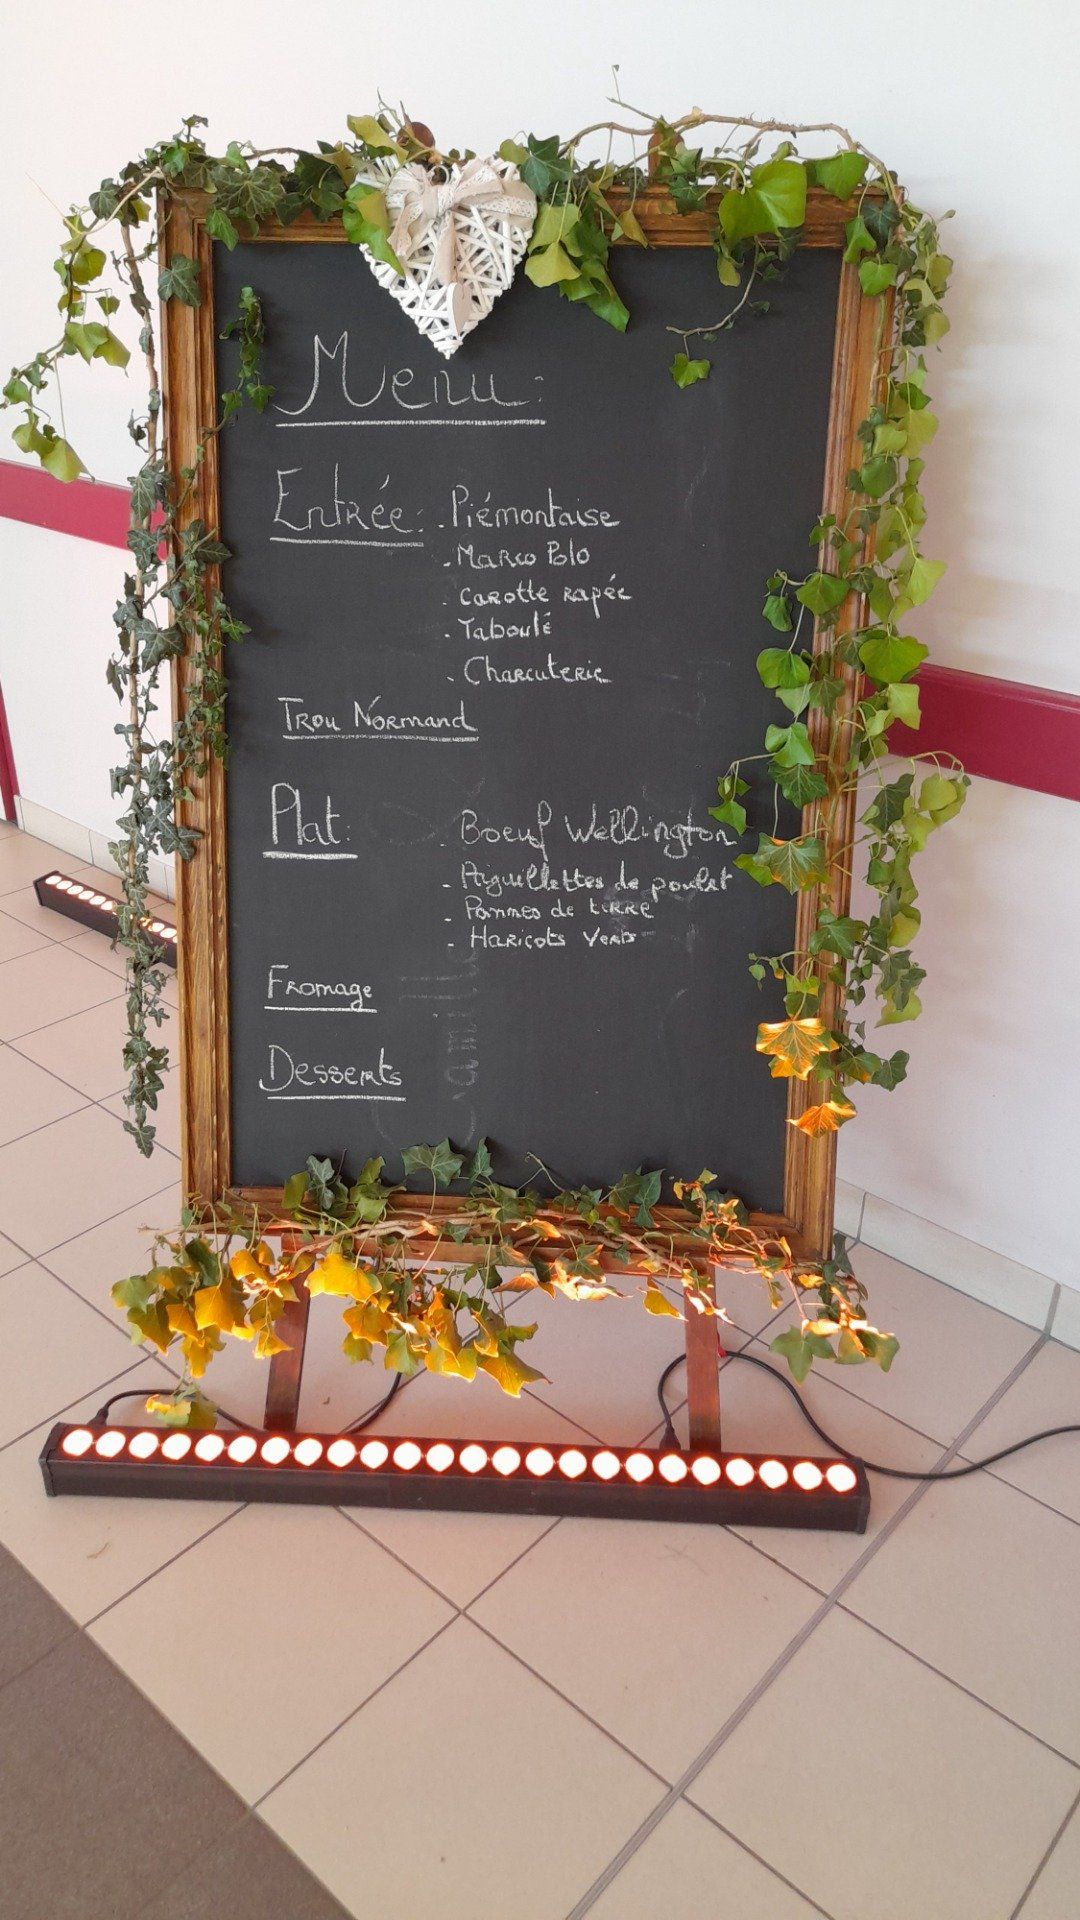 Menu:
Entrée: . Piémontaise
- Marco Polo
- Carotte rapée
- Taboulé
- Charcuterie
Trou Normand
Plat: . Boeuf Wellington
- Aiguillettes de poulet
- Pommes de terre
- Haricots Verts
Fromage
Desserts